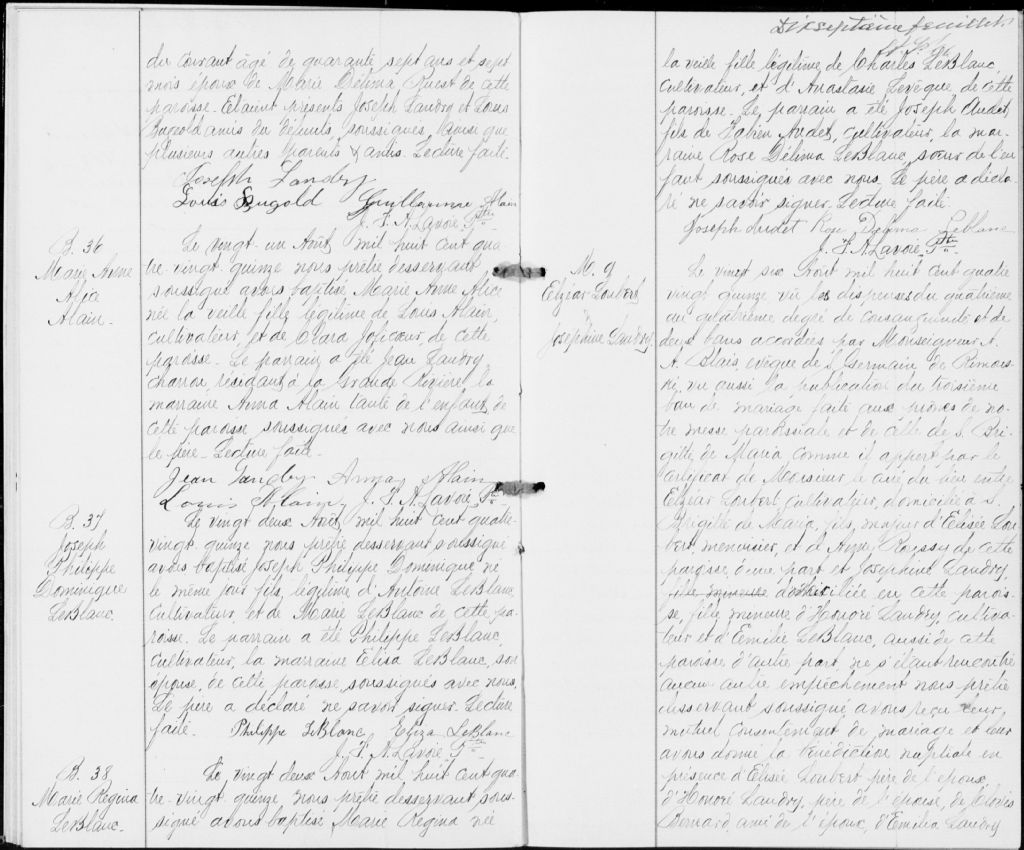 du courant âgé de quarante sept ans et sept
mois époux de Marie Délima Ruest de cette
paroisse. Etaient présents Joseph Landry et Louis
Bugold amis du défunt, soussignés, ainsi que
plusieurs autres parents & amis. Lecture faite.
Joseph Landry
Louis Bugold Guillaume Alain
J. F. A. Lavoie Ptre
B. 36
Marie Anne
Alice
Alain.
Le vingt-un Août, mil huit cent qua-
tre-vingt quinze nous prêtre desservant
soussigné avons baptisé Marie Anne Alice
née la veille fille légitime de Louis Alain,
cultivateur, et de Clara de cette
paroisse. Le parrain a été Jean Landry
charron résidant à la Grande Rivière, la
marraine Anna Alain tante de l'enfant, de
cette paroisse soussignés avec nous ainsi que
le père. Lecture faite.
Jean Landry Alain
Louis Alain J. F. A. Lavoie Ptre
B. 37
Joseph
Philippe
Dominique
LeBlanc.
Le vingt deux Août, mil huit cent quatre-
vingt quinze nous prêtre desservant soussigné
avons baptisé Joseph Philippe Dominique né
le même jour fils légitime d'Antoine LeBlanc
Cultivateur, et de Marie LeBlanc de cette pa-
roisse. Le parrain a été Philippe LeBlanc,
cultivateur, la marraine Elisa LeBlanc, son
épouse, de cette paroisse, soussignés avec nous.
Le père a déclaré ne savoir signer. Lecture
faite. Philippe LeBlanc Eliza LeBlanc
J. F. A. Lavoie Ptre
B. 38
Marie Régina
LeBlanc.
Le vingt deux Août mil huit cent qua-
tre-vingt quinze nous prêtre desservant sous-
signé avons baptisé Marie Régina née
Dixseptième feuillet.
la veille fille légitime de Charles LeBlanc,
cultivateur, et d'Anastasie Levêque, de cette
paroisse. Le parrain a été Joseph Audet,
fils de Fabien Audet, cultivateur, la mar-
raine Rose Délima LeBlanc, sœur de l'en-
fant soussignés avec nous. Le père a décla-
ré ne savoir signer. Lecture faite.
Joseph Audet Rose Delima Leblanc
J. F. A. Lavoie Ptre
M. 9
Elzéar Loubert
&
Joséphine Landry.
Le vingt six Août mil huit cent quatre
vingt quinze vu les dispenses du quatrième
au quatrième degré de consanguinité et de
deux bans accordées par Monseigneur A.
A. Blais, évêque de St Germain de Rimous-
ki, vu aussi la publication du troisième
ban de mariage faite aux prônes de no-
tre messe paroissiale et de celle de S. Bri-
gitte de Maria comme il appert par le
certificat de Monsieur le curé du lieu entre
Elzéar Loubert, cultivateur, domicilié à S.
Brigitte de Maria, fils, majeur d'Elisée Lou-
bert, menuisier, et d'Anne Roussy de cette
paroisse d'une part et Joséphine Landry,
fille mineure domiciliée en cette parois-
se, fille mineure d'Honoré Landry, cultiva-
teur et d'Emilie LeBlanc, aussi de cette
paroisse d'autre part, ne s'étant rencontré
aucun autre empêchement nous prêtre
desservant soussigné, avons reçu leur
mutuel consentement de mariage et leur
avons donné la bénédiction nuptiale en
présence d'Elisée Loubert père de l'époux,
d'Honoré Landry, père de l'épouse, de
Bernard, ami de l'époux, d'Emilia Landry